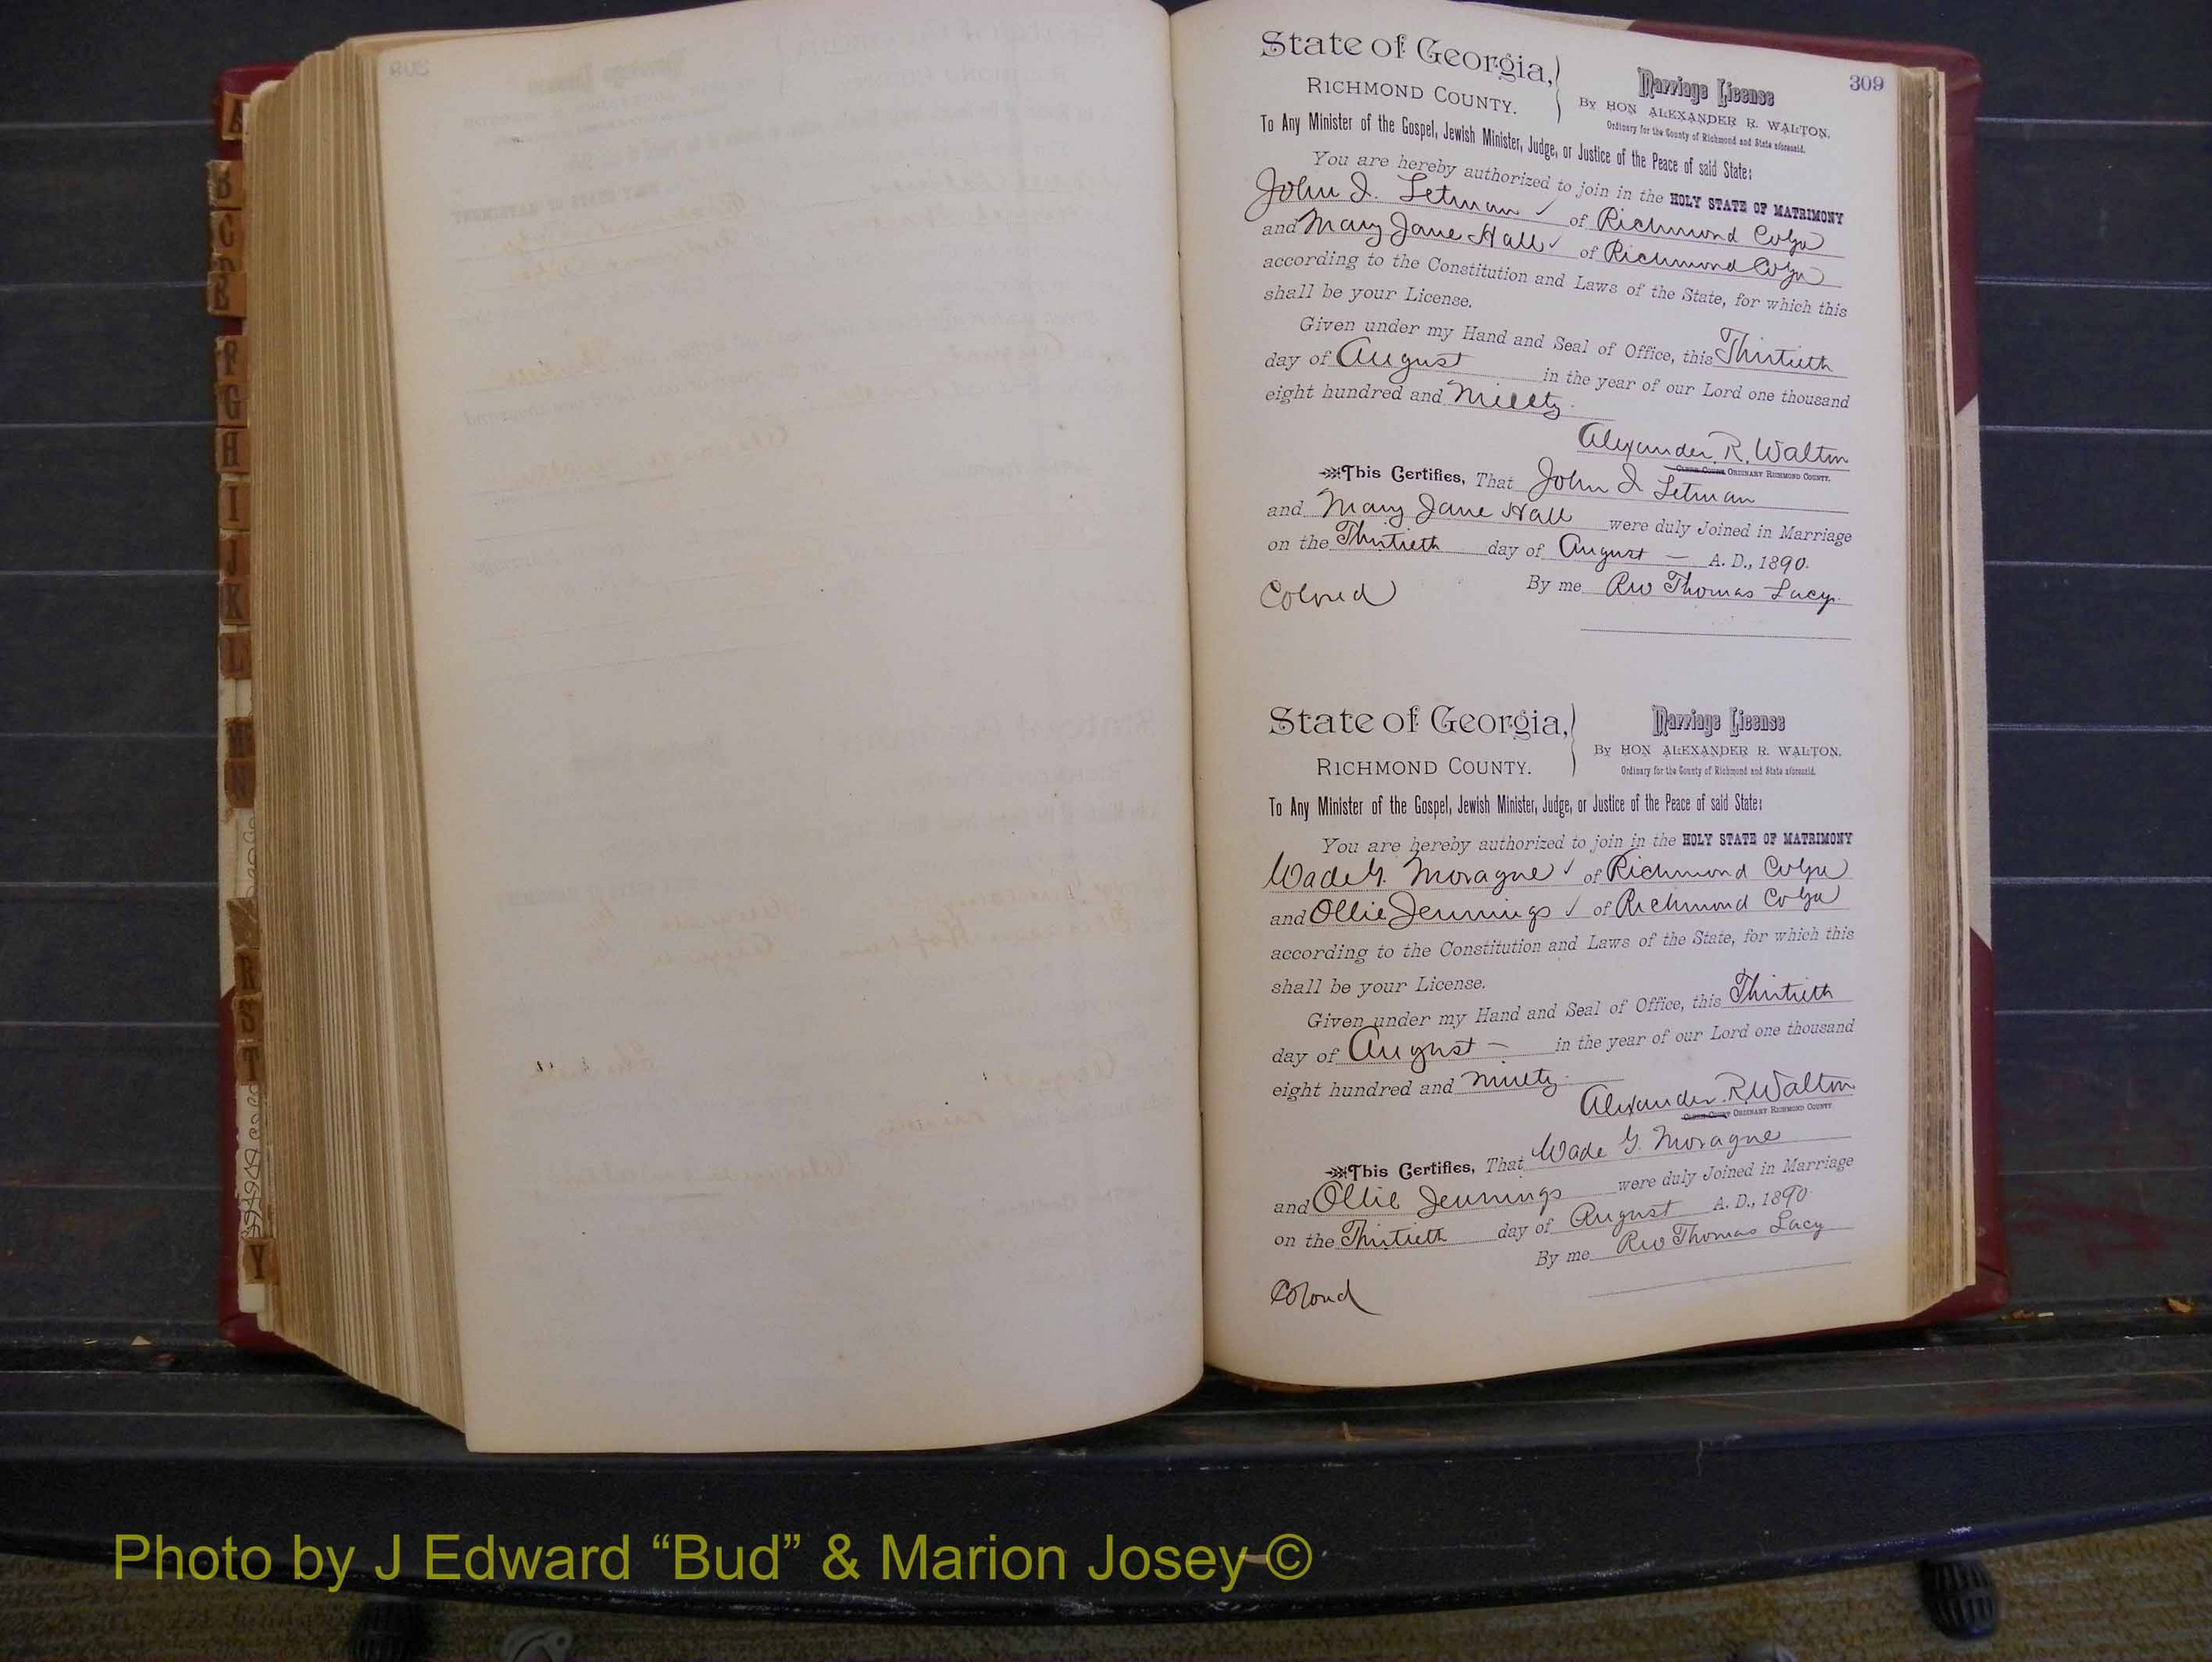 309
State of Georgia,
RICHMOND COUNTY.
Marriage License
By HON. ALEXANDER R. WALTON,
Ordinary for the County of Richmond and State aforesaid.
To Any Minister of the Gospel, Jewish Minister, Judge, or Justice of the Peace of said State:
You are hereby authorized to join in the HOLY STATE OF MATRIMONY
John I. Letman ✓ of Richmond Co Ga
and Mary Jane Hall ✓ of Richmond Co Ga
according to the Constitution and Laws of the State, for which this
shall be your License.
Given under my Hand and Seal of Office, this Thirtieth
day of August in the year of our Lord one thousand
eight hundred and Ninety.
Alexander R. Walton
CLERK COURT ORDINARY RICHMOND COUNTY.
This Certifies, That John I Letman
and Mary Jane Hall were duly Joined in Marriage
on the Thirtieth day of August — A. D., 1890.
By me Rev Thomas Lacy.
Colored
State of Georgia,
RICHMOND COUNTY.
Marriage License
By HON. ALEXANDER R. WALTON,
Ordinary for the County of Richmond and State aforesaid.
To Any Minister of the Gospel, Jewish Minister, Judge, or Justice of the Peace of said State:
You are hereby authorized to join in the HOLY STATE OF MATRIMONY
Wade G. Moragne ✓ of Richmond Co Ga
and Ollie Jennings ✓ of Richmond Co Ga
according to the Constitution and Laws of the State, for which this
shall be your License.
Given under my Hand and Seal of Office, this Thirtieth
day of August — in the year of our Lord one thousand
eight hundred and Ninety.
Alexander R. Walton
CLERK COURT ORDINARY RICHMOND COUNTY.
This Certifies, That Wade G. Moragne
and Ollie Jennings were duly Joined in Marriage
on the Thirtieth day of August A. D., 1890.
By me Rev Thomas Lacy
Colored
A
B
C
D
E
F
G
H
I
J
K
L
M
N
R
S
T
Y
Photo by J Edward “Bud” & Marion Josey ©